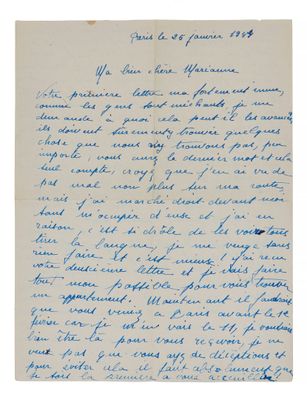 Paris le 25 janvier 1947
Ma bien chère Marianne
Votre première lettre ma fortement émue,
comme les gens sont méchants, je me
demande à quoi cela peut il les avancer
ils doivent surement y trouvée quelques
chose que nous n'y trouvons pas, peu
importe, vous aurez le dernier mot et cela
seul compte, croyez que j'en ai vu de
pas mal non plus sur ma route
mais j'ai marché droit devant moi
sans m'occuper d'eux et j'ai eu
raison, c'est si drôle de les voir tous
tirer la langue, je me venge sans
rien faire et c'est mieux ! j'ai reçu
votre deuxième lettre et je vais faire
tout mon possible pour vous trouver
un appartement. Maintenant il faudrait
que vous veniez à Paris avant le 1er
février car je m'en vais le 11, je voudrais
bien être là pour vous reçevoir, je ne
veux pas que vous ayez de déceptions et
pour éviter cela il faut absolument que
je sois la première a vous accueillir !